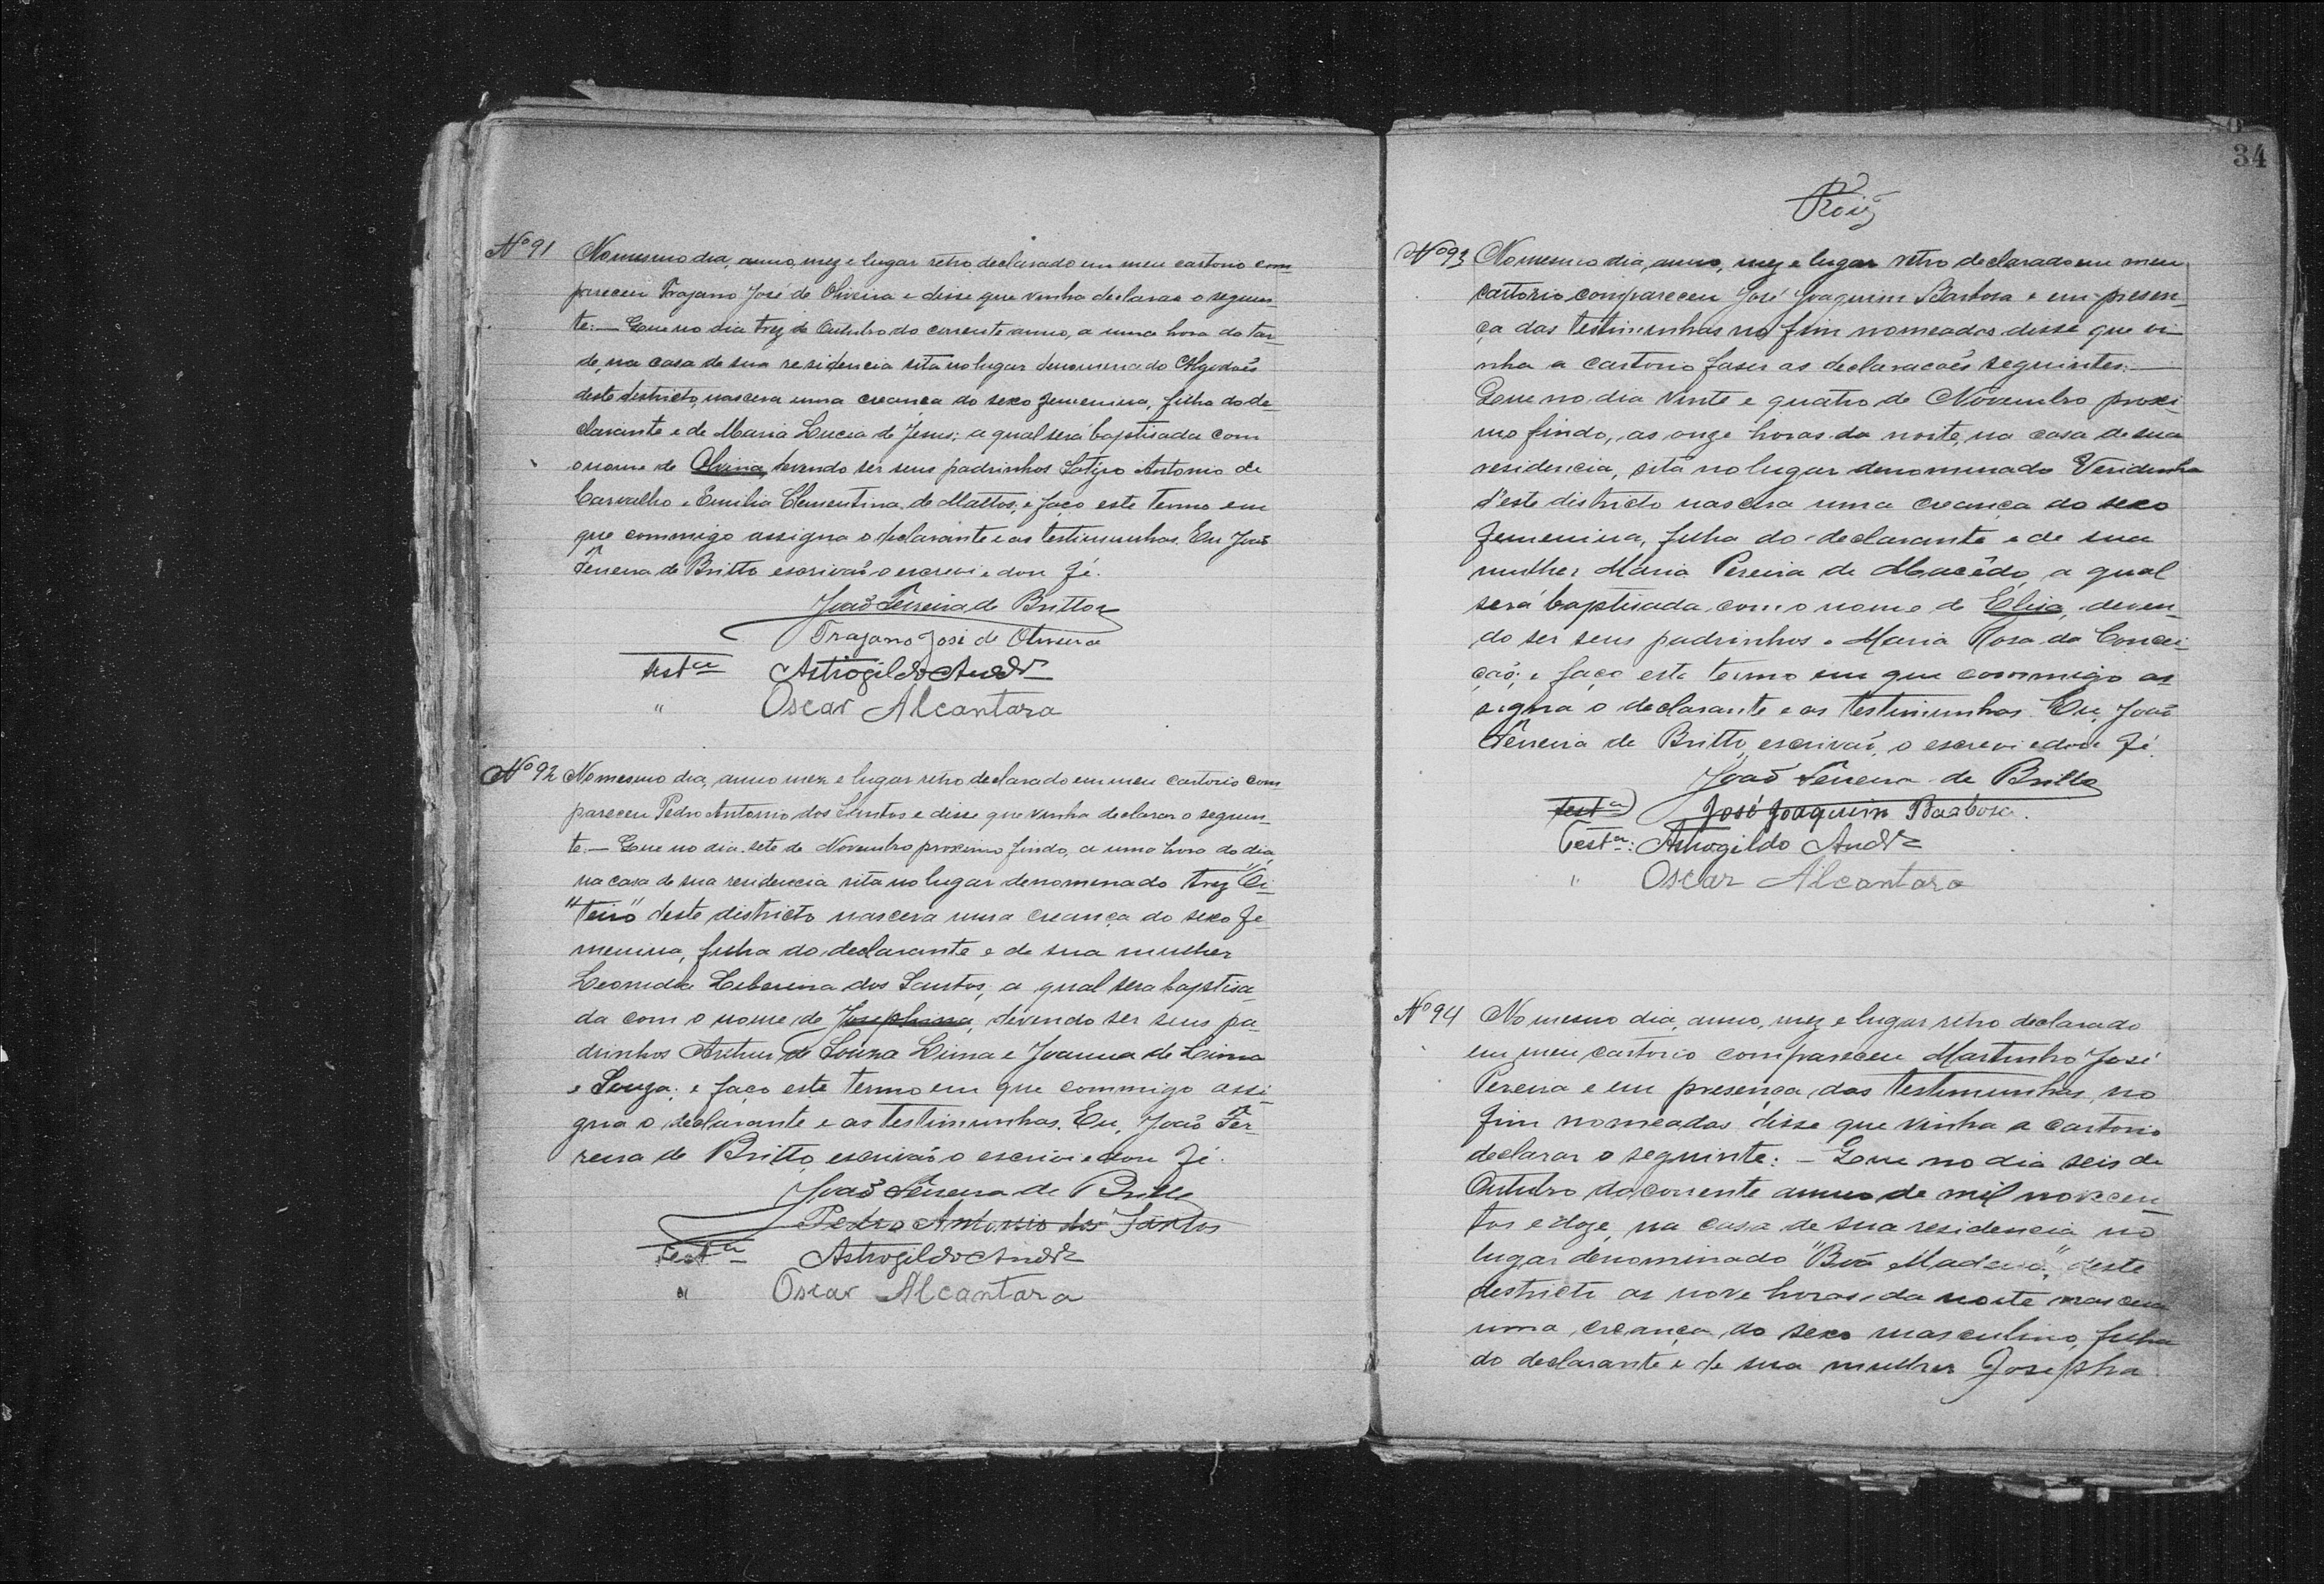 Nº 91 No mesmo dia, anno, mez e lugar retro declarado em meu cartorio com-
pareceu Trajano José de Oliveira e disse que vinha declarar o seguin-
te:— Que no dia trez de Outubro do corrente anno, a uma hora da tar-
de, na casa de sua residencia sita no lugar denominado Algodoẽs
deste districto, nascera uma creança do sexo femenina, filha do de-
clarante e de Maria Lucia de Jesus; a qual será baptisada com
o nome de Olivia, devendo ser seus padrinhos Antonio de
Carvalho e Emilia Clementina de Mattos; e faço este termo em
que commigo assigna o declarante e as testimunhas. Eu João
Ferreira de Britto escrivaõ o escrevi e dou fé.
João Ferreira de Britto
Trajano José de Oliveira
testa Astrogildo Andr
" Oscar Alcantara
Nº 92 No mesmo dia, anno mez e lugar retro declarado em meu cartorio com
pareceu Pedro Antonio dos Santos e disse que vinha declarar o seguin-
te:— Que no dia sete de Novembro proximo findo, a uma hora do dia,
na casa de sua residencia sita no lugar denomenado trez "Oi-
"teiro" deste districto nascera uma creança do sexo fe-
menina, filha do declarante e de sua mulher
Leonidia Liberina dos Santos, a qual sera baptisa-
da com o nome de Josephina, devendo ser seus pa-
drinhos Arthur de Souza Lima e Joanna de Lima
e Souza; e faço este termo em que commigo assi-
gna o declarante e as testimunhas. Eu, João Fer-
reira de Britto escrivaõ o escrivi e dou fé.
João Ferreira de Britto
Pedro Antonio dos Santos
testa Astrogildo Andr
" Oscar Alcantara
34
Nº 93 No mesmo dia, anno, mez e lugar retro declarado em meu
cartorio compareceu José Joaquim Barbosa e em presen-
ça das testimunhas no fim nomeadas disse que vi-
nha a cartorio faser as declaracoẽs seguintes:—
Que no dia vinte e quatro de Novembro proxi-
mo findo, as onze horas da noite, na casa de sua
residencia, sita no lugar denominado Veridinha
d'este districto nascera uma creança do sexo
femenina, filha do declarante e de sua
mulher Maria Pereira de Macêdo, a qual
será baptisada com o nome de Elisa, deven-
do ser seus padrinhos e Maria Rosa da Concei-
ção; e faço este termo em que commigo as
signa o declarante e as testimunhas. Eu, João
Ferreira de Britto, escrivaõ, o escrevi e dou fé.
João Ferreira de Britto
testa José Joaquim Barbosa.
Testa: Astrogildo Andr
" Oscar Alcantara
Nº 94 No mesmo dia, anno, mez e lugar retro declarado
em meu cartorio compareceu Martinho José
Pereira e em presença das testimunhas no
fim nomeadas disse que vinha a cartorio
declarar o seguinte:— Que no dia seis de
Outubro do corrente anno de mil novecen-
tos e doze, na casa de sua residencia no
lugar denominado "Bôa Madeira", deste
districto as nove horas da noite nascera
uma creança do sexo masculino, filha
do declarante e de sua mulher Josepha